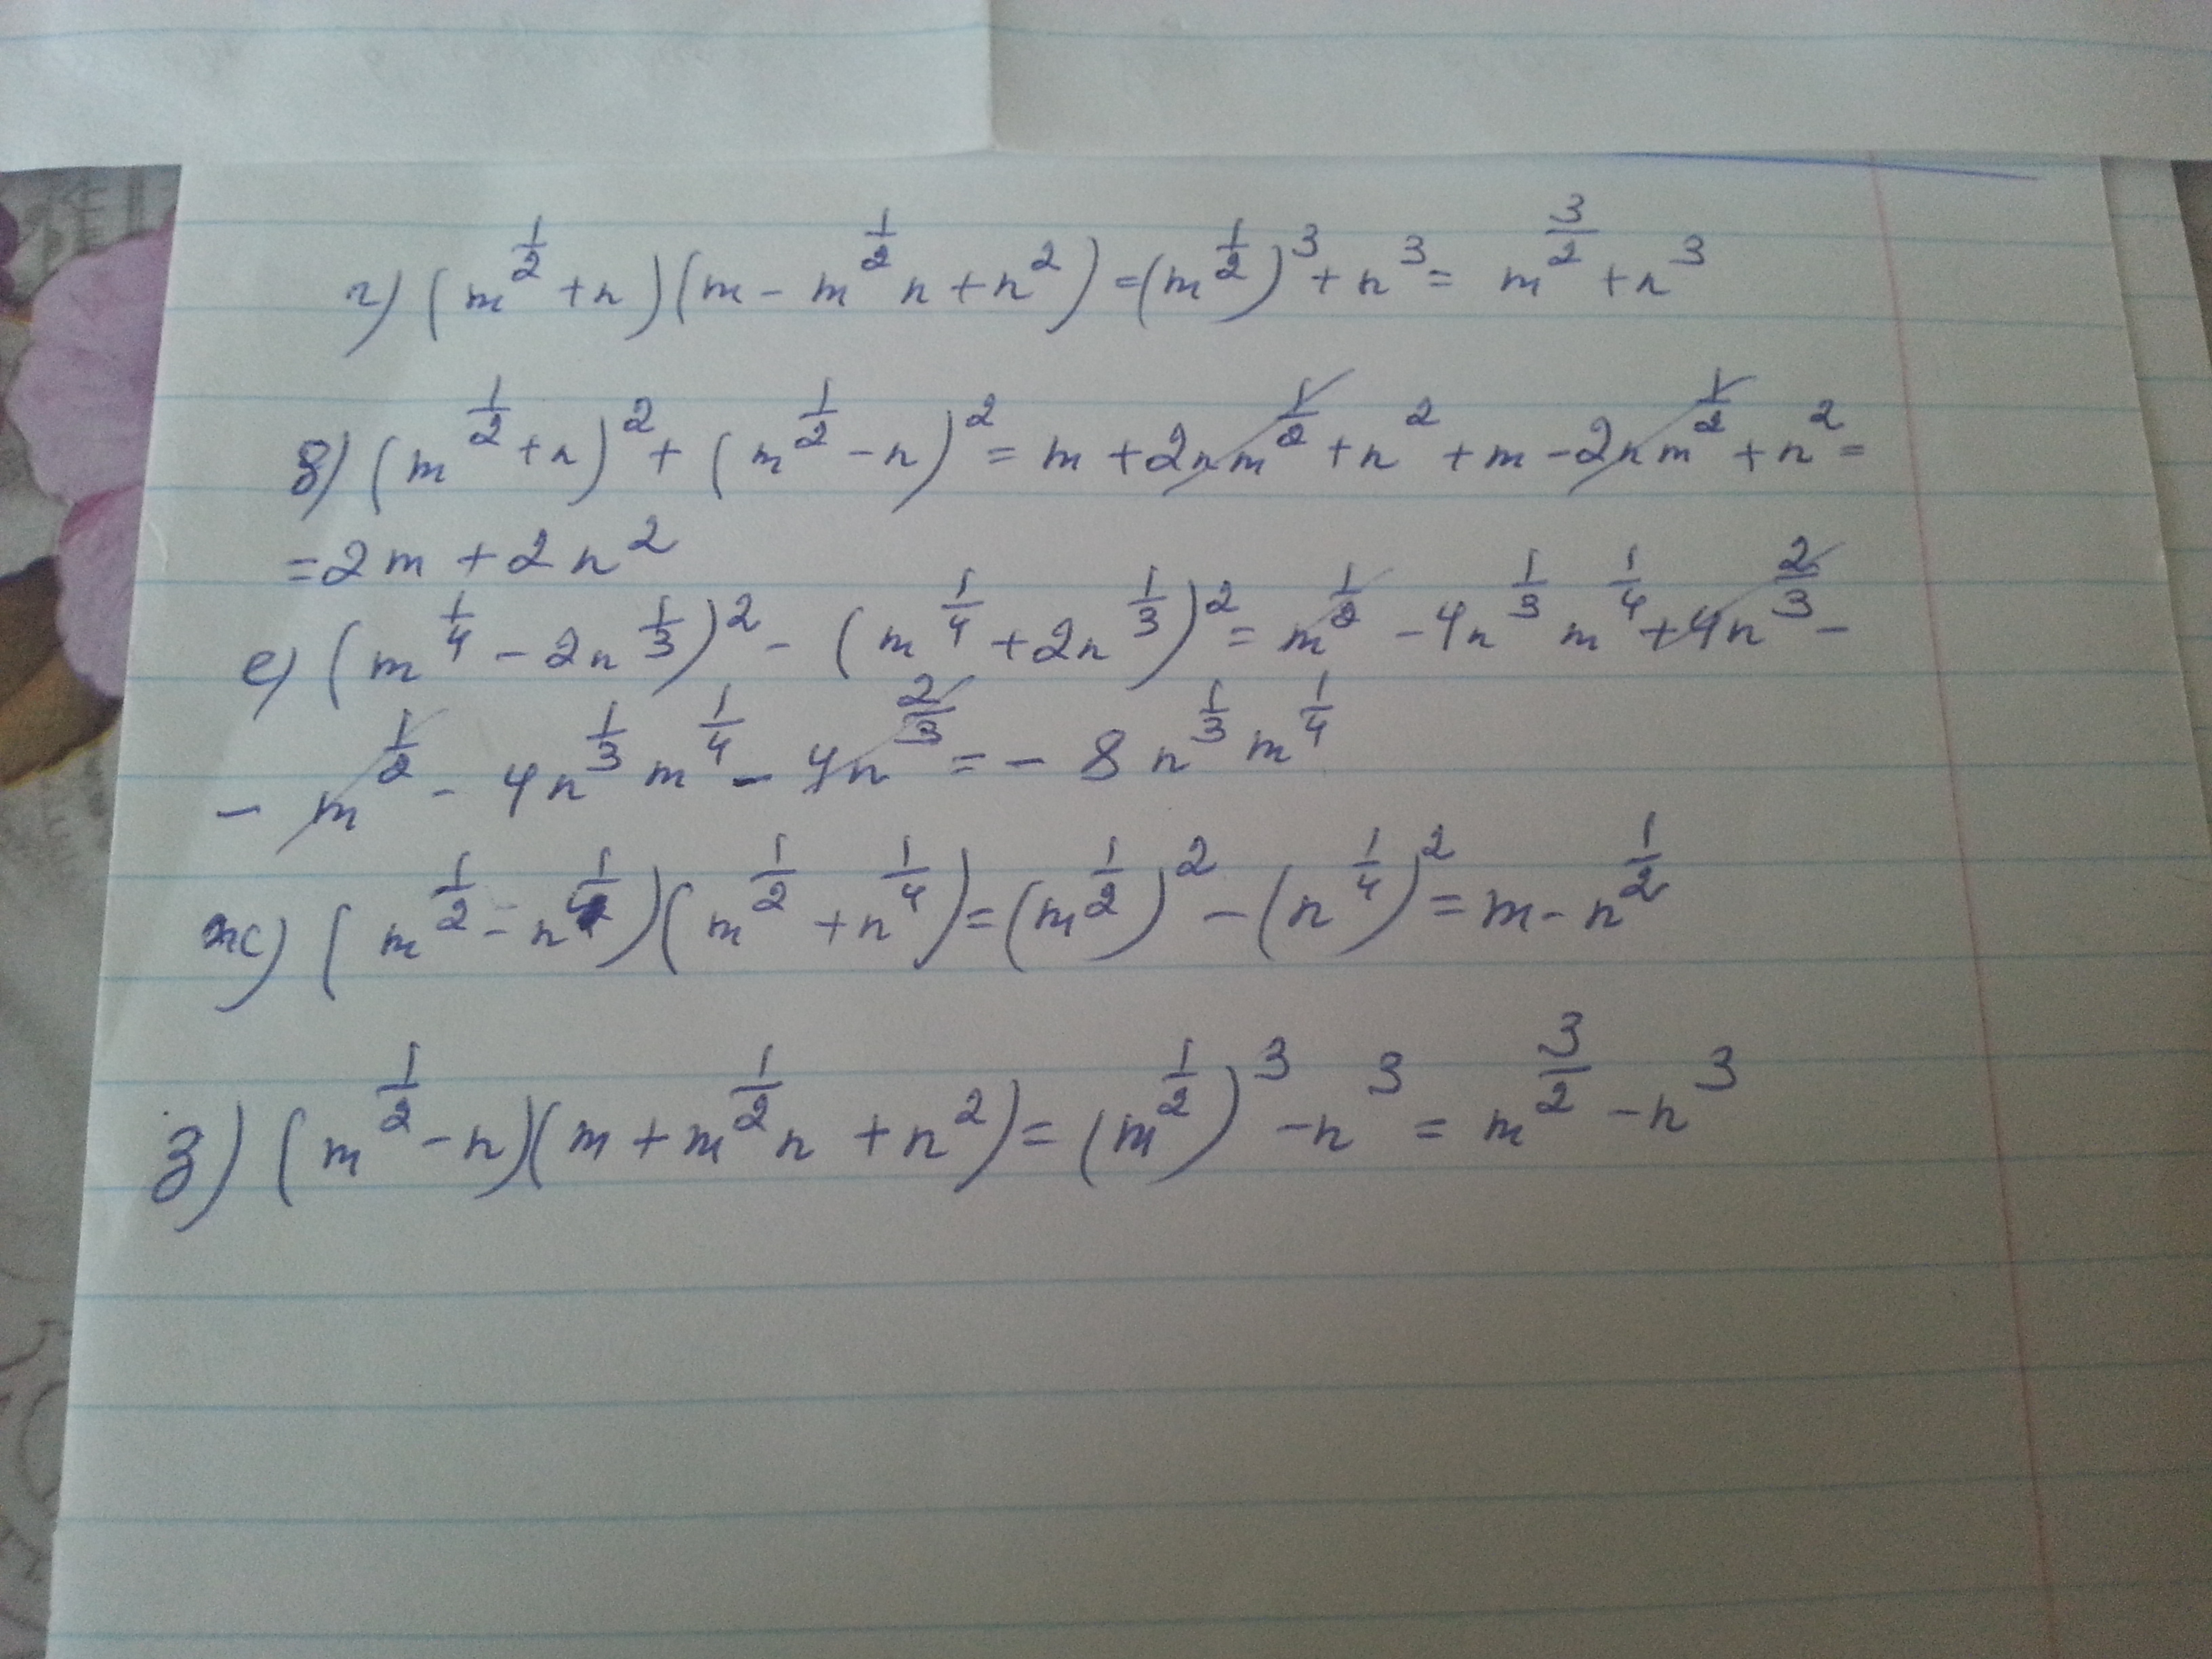 г) (m^{1/2} + n)(m - m^{1/2} n + n^2) = (m^{1/2})^3 + n^3 = m^{3/2} + n^3
в) (m^{1/2} + n)^2 + (m^{1/2} - n)^2 = m + 2nm^{1/2} + n^2 + m - 2nm^{1/2} + n^2 =
= 2m + 2n^2
е) (m^{1/4} - 2n^{1/3})^2 - (m^{1/4} + 2n^{1/3})^2 = m^{1/2} - 4n^{1/3} m^{1/4} + 4n^{2/3} -
- m^{1/2} - 4n^{1/3} m^{1/4} - 4n^{2/3} = - 8 n^{1/3} m^{1/4}
ж) (m^{1/2} - n^{1/4})(m^{1/2} + n^{1/4}) = (m^{1/2})^2 - (n^{1/4})^2 = m - n^{1/2}
з) (m^{1/2} - n)(m + m^{1/2} n + n^2) = (m^{1/2})^3 - n^3 = m^{3/2} - n^3